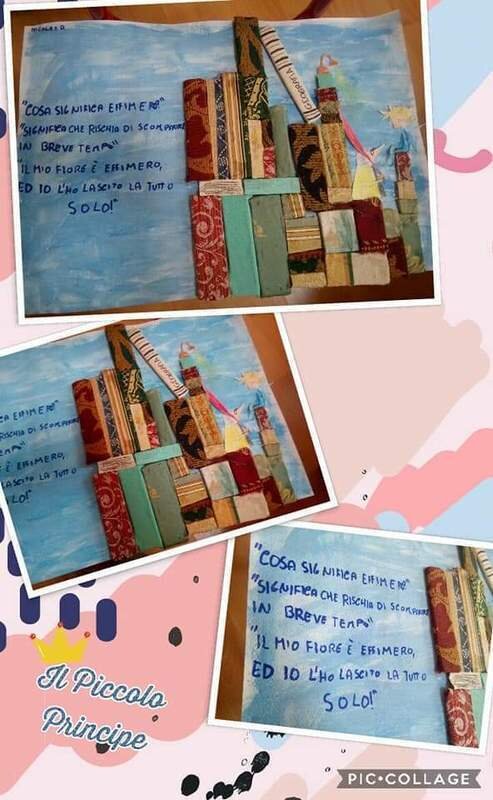 NICOLAS D.
"COSA SIGNIFICA EFFIMERO"
"SIGNIFICA CHE RISCHIA DI SCOMPARIRE
IN BREVE TEMPO"
"IL MIO FIORE È EFFIMERO,
ED IO L'HO LASCITO LA TUTTO
SOLO!"
GEOGRAFIA
CA EFFIMERO"
RISCHIA DI SCOMPARIRE
TEMPO"
È EFFIMERO,
LASCITO LA TUTTO
SOLO!"
GEOGRAFIA
"COSA SIGNIFICA EFFIMERO"
"SIGNIFICA CHE RISCHIA DI SCOMPARIRE
IN BREVE TEMPO"
"IL MIO FIORE È EFFIMERO,
ED IO L'HO LASCITO LA TUTTO
SOLO!"
Il Piccolo
Principe
PIC•COLLAGE